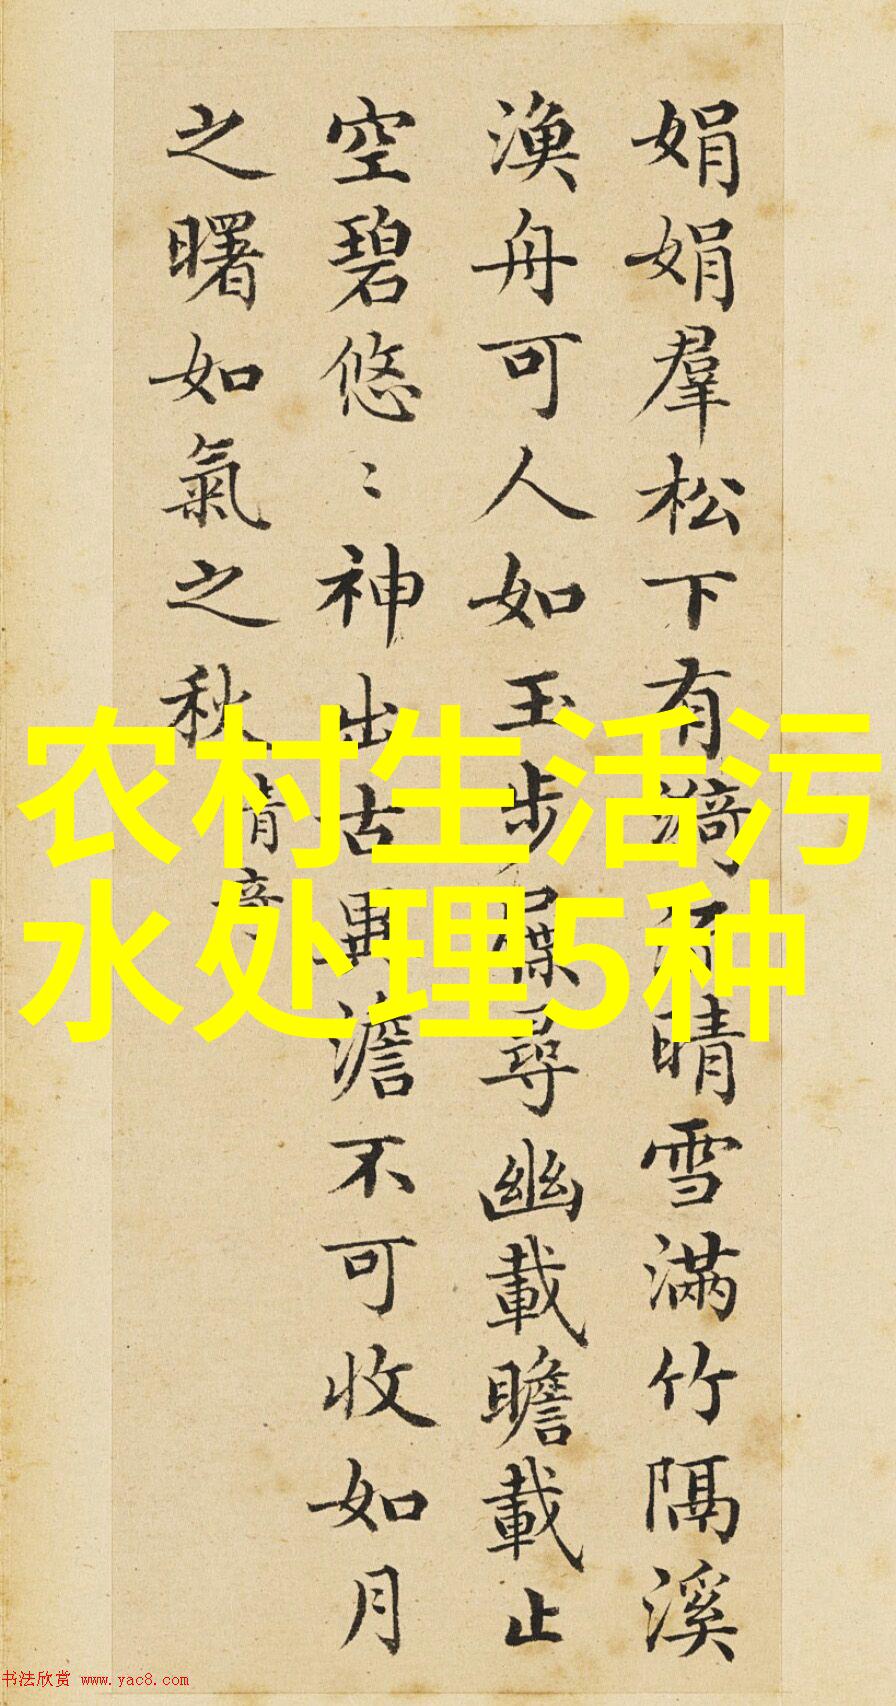 娟娟羣松下有漪流晴雪滿竹隔溪
漁舟可人如玉步屧尋幽載瞻載止
空碧悠〻神出古異澹不可收如月
之曙如氣之秋
清奇
农村生活污
水处理5种
书法欣赏 www.yac8.com